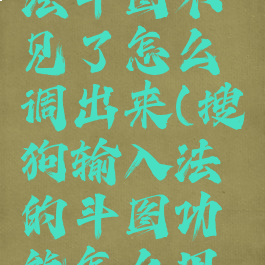 法斗图不
见了怎么
调出来(搜
狗输入法
的斗图功
能怎么调